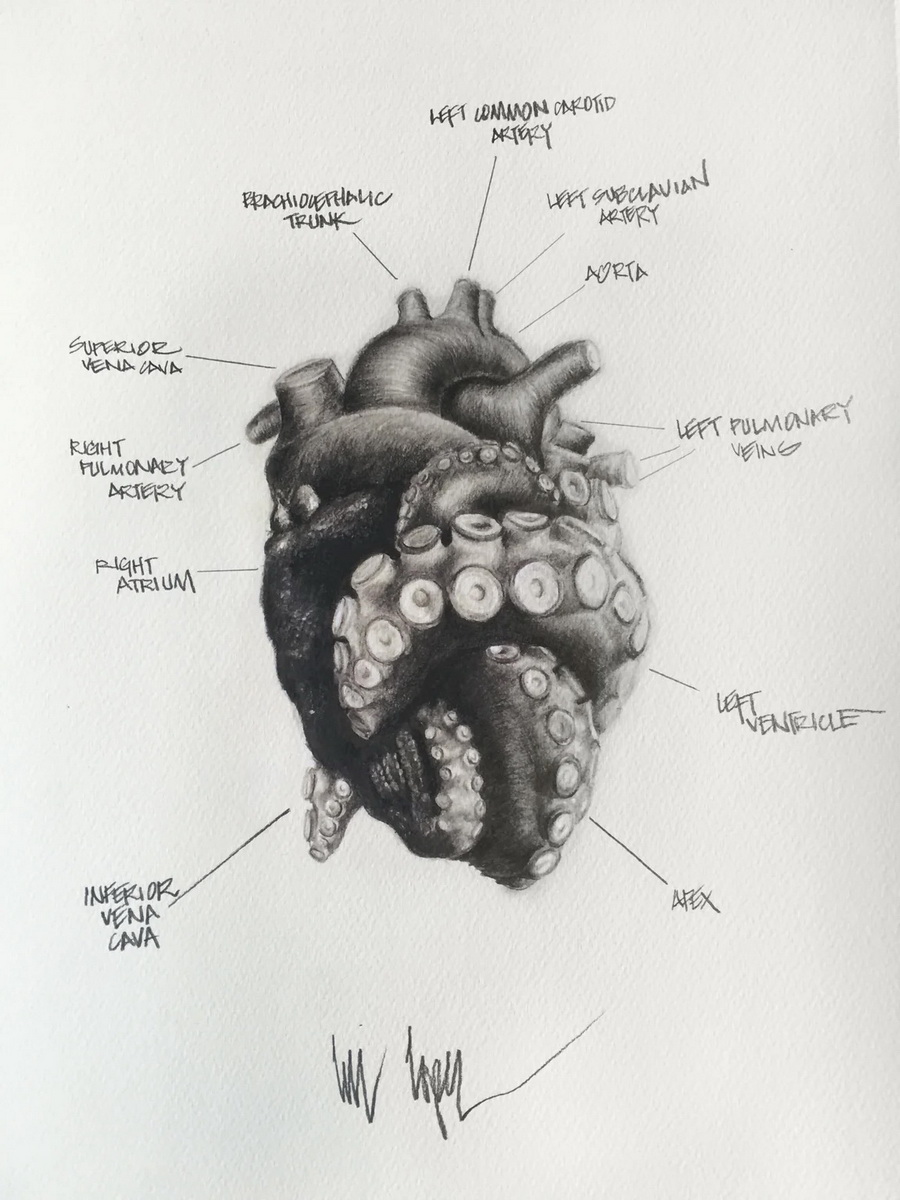 LEFT COMMON CAROTID
ARTERY
BRACHIOCEPHALIC
TRUNK
LEFT SUBCLAVIAN
ARTERY
AORTA
SUPERIOR
VENA CAVA
LEFT PULMONARY
VEINS
RIGHT
PULMONARY
ARTERY
RIGHT
ATRIUM
LEFT
VENTRICLE
INFERIOR
VENA
CAVA
APEX